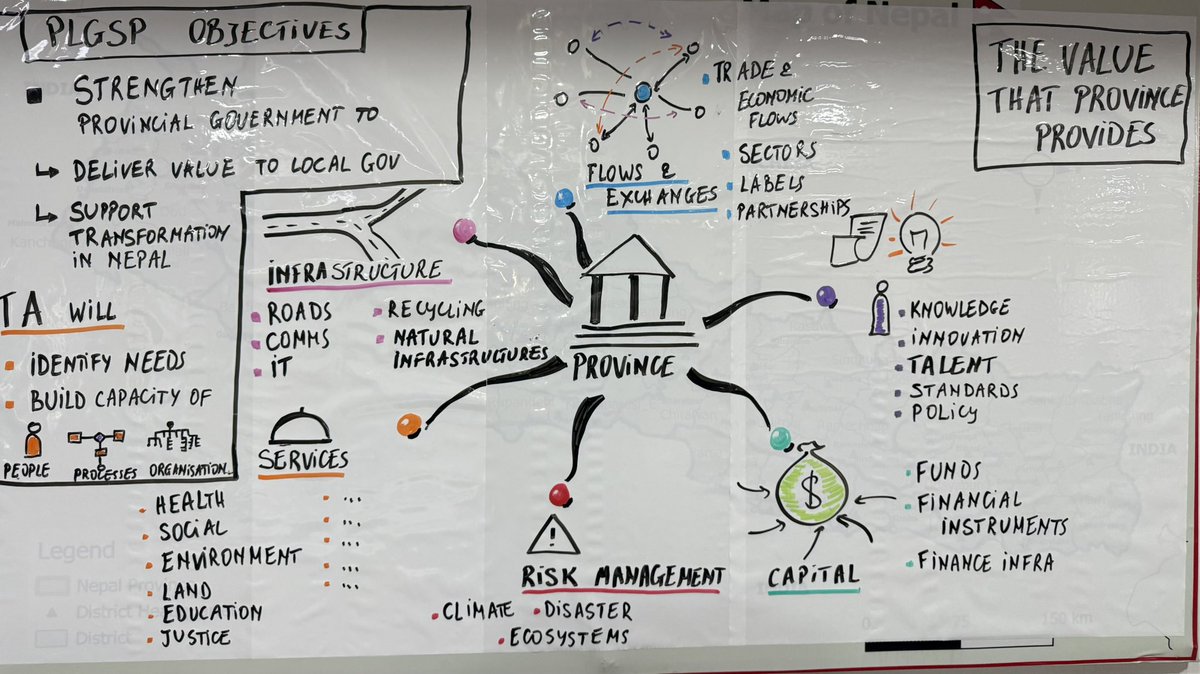 PLGSP OBJECTIVES
STRENGTHEN
PROVINCIAL GOVERNMENT TO
DELIVER VALUE TO LOCAL GOV
SUPPORT
TRANSFORMATION
IN NEPAL
TA WILL
IDENTIFY NEEDS
BUILD CAPACITY OF
PEOPLE
PROCESSES
ORGANISATION
THE VALUE
THAT PROVINCE
PROVIDES
PROVINCE
FLOWS &
EXCHANGES
TRADE &
ECONOMIC
FLOWS
SECTORS
LABELS
PARTNERSHIPS
INFRASTRUCTURE
ROADS
COMMS
IT
RECYCLING
NATURAL
INFRASTRUCTURES
KNOWLEDGE
INNOVATION
TALENT
STANDARDS
POLICY
SERVICES
HEALTH
SOCIAL
ENVIRONMENT
LAND
EDUCATION
JUSTICE
...
...
...
...
...
!
RISK MANAGEMENT
CLIMATE
DISASTER
ECOSYSTEMS
$
CAPITAL
FUNDS
FINANCIAL
INSTRUMENTS
FINANCE INFRA
Map of Nepal
INDIA
Legend
District
0
75
150 km